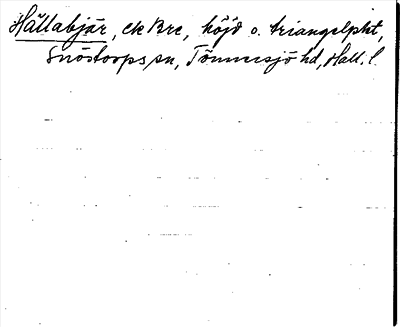 Hällabjär, ek Bre, höjd o. triangelpkt,
Snöstorps sn, Tönnersjö hd, Hall. l.